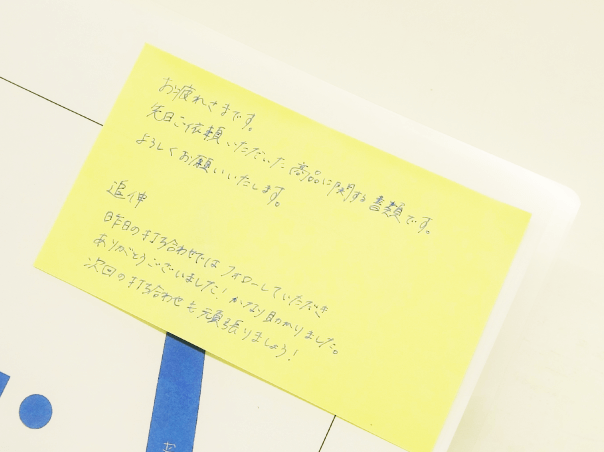 お疲れさまです。
先日ご依頼いただいた商品に関する書類です。
よろしくお願いいたします。
追伸
昨日の打ち合わせではフォローしていただき
ありがとうございました！かなり助かりました。
次回の打ち合わせも頑張りましょう！